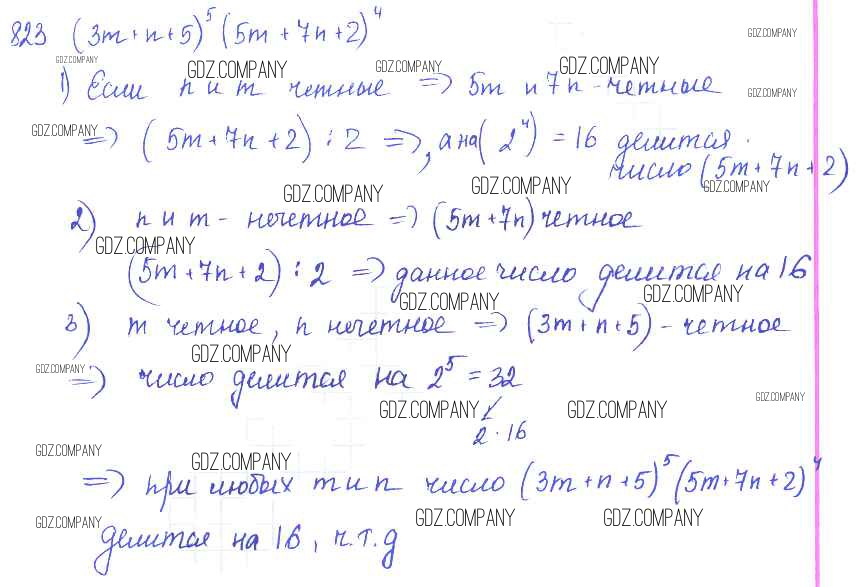 823 (3m+n+5)^5 (5m+7n+2)^4
GDZ.COMPANY
GDZ.COMPANY GDZ.COMPANY GDZ.COMPANY GDZ.COMPANY
1) Если n и m четные => 5m и 7n - четные
GDZ.COMPANY
GDZ.COMPANY
=> (5m+7n+2) ⋮ 2 =>, а на (2^4) = 16 делится
число (5m+7n+2)
GDZ.COMPANY GDZ.COMPANY GDZ.COMPANY
2) n и m - нечетное => (5m+7n) четное
GDZ.COMPANY
(5m+7n+2) ⋮ 2 => данное число делится на 16
GDZ.COMPANY GDZ.COMPANY
3) m четное, n нечетное => (3m+n+5) - четное
GDZ.COMPANY
GDZ.COMPANY
=> число делится на 2^5 = 32
GDZ.COMPANY GDZ.COMPANY GDZ.COMPANY
2·16
GDZ.COMPANY GDZ.COMPANY
=> при любых m и n число (3m+n+5)^5 (5m+7n+2)^4
GDZ.COMPANY GDZ.COMPANY GDZ.COMPANY
делится на 16, ч.т.д